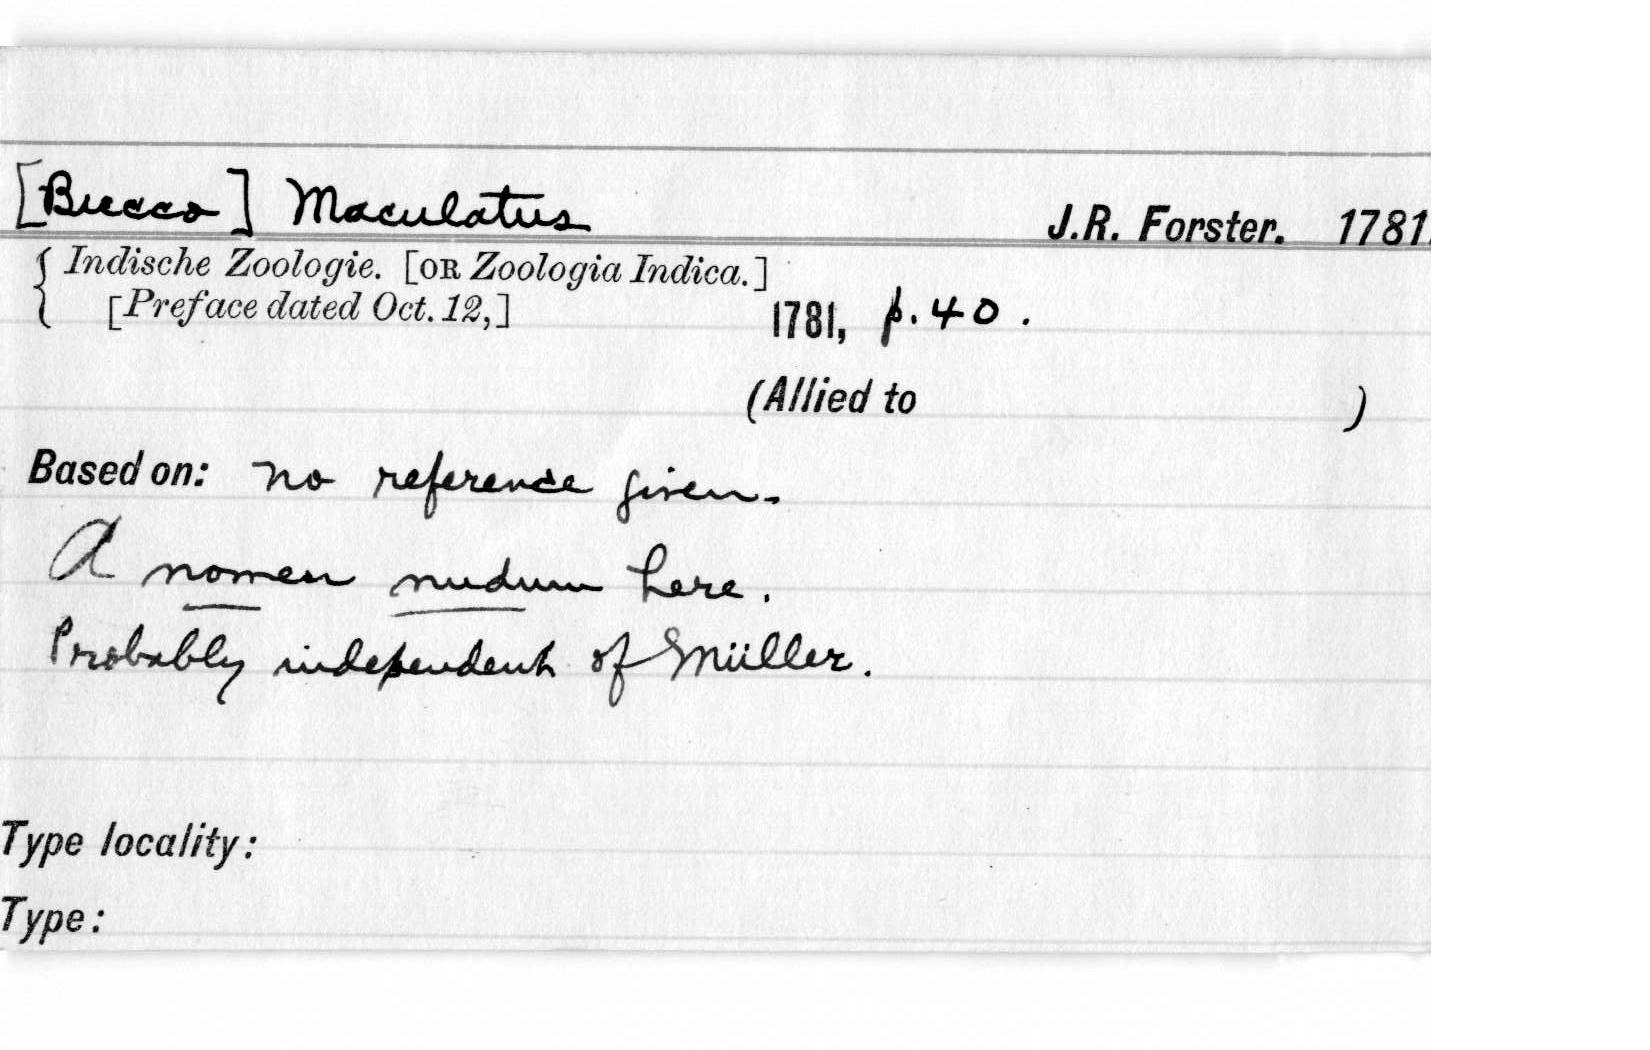 [Bucco] Maculatus J.R. Forster. 1781.
{ Indische Zoologie. [OR Zoologia Indica.]
[Preface dated Oct. 12,] 1781, p. 40.
(Allied to )
Based on: no reference given.
A nomen nudum here.
Probably independent of Müller.
Type locality:
Type: